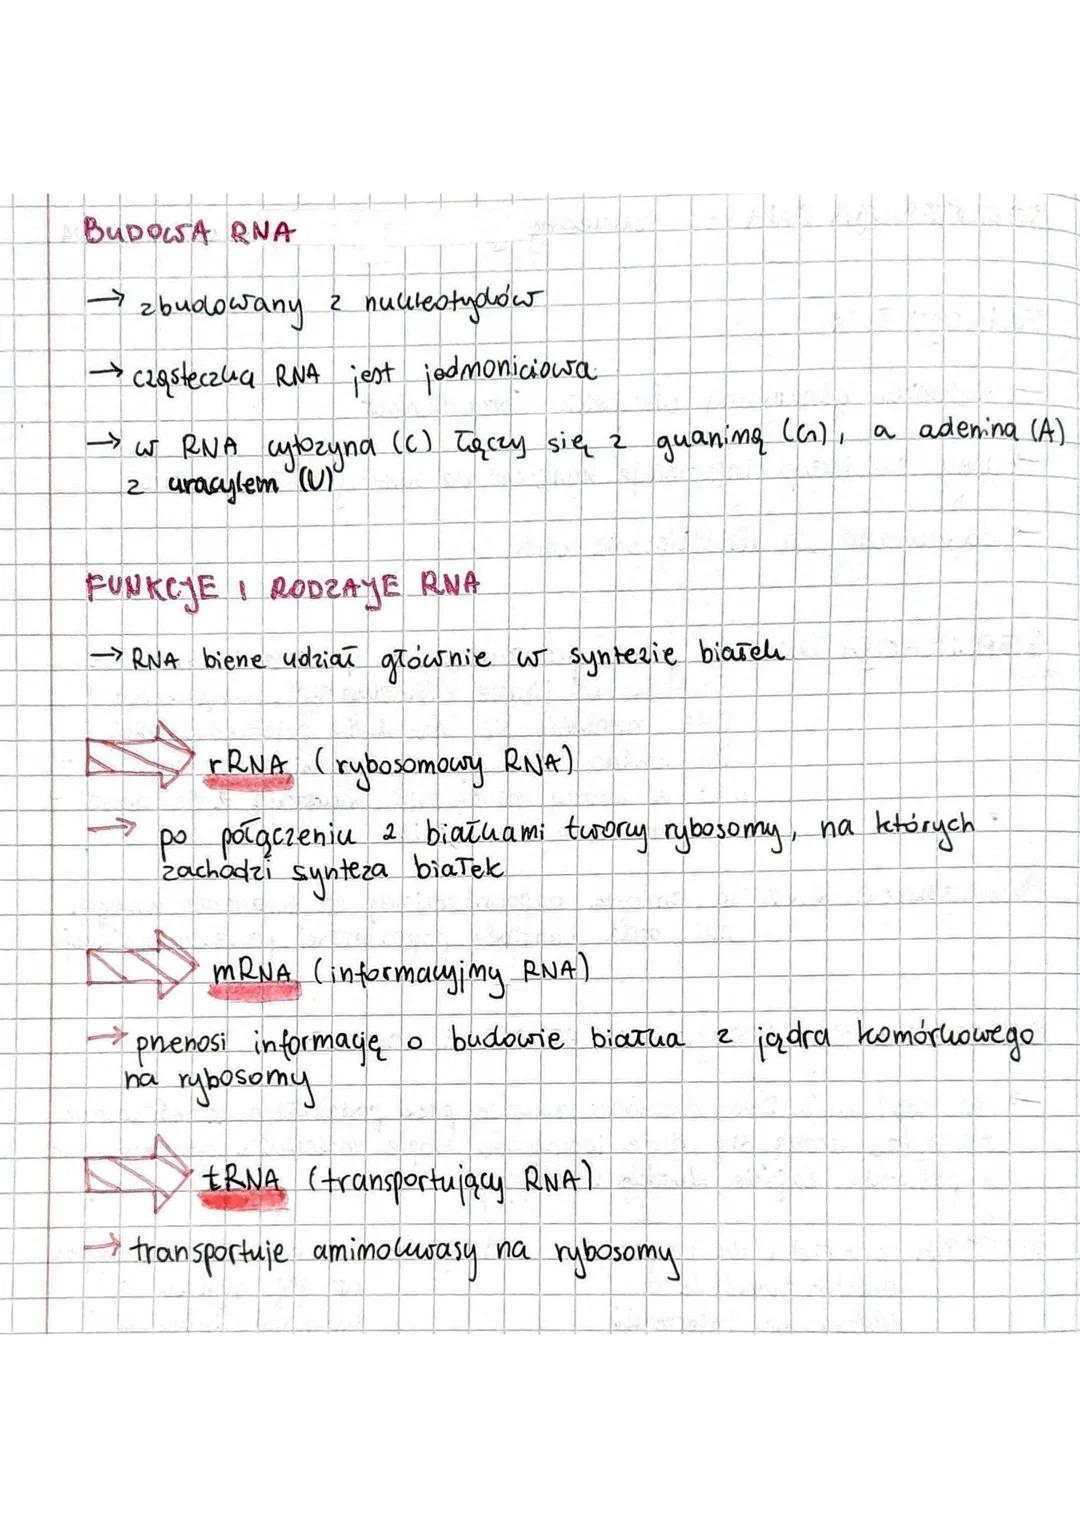 BUDOWA RNA
→ zbudowany z nukleotydów
→ cząsteczka RNA jest jednoniciowa
→ w RNA cytozyna (C) łączy się z guaniną (G), a adenina (A)
z uracylem (U)
FUNKCJE I RODZAJE RNA
→ RNA bierze udział głównie w syntezie białek
rRNA (rybosomowy RNA)
→ po połączeniu z białkami tworzy rybosomy, na których
zachodzi synteza białek
mRNA (informacyjny RNA)
→ przenosi informację o budowie białka z jądra komórkowego
na rybosomy
tRNA (transportujący RNA)
→ transportuje aminokwasy na rybosomy